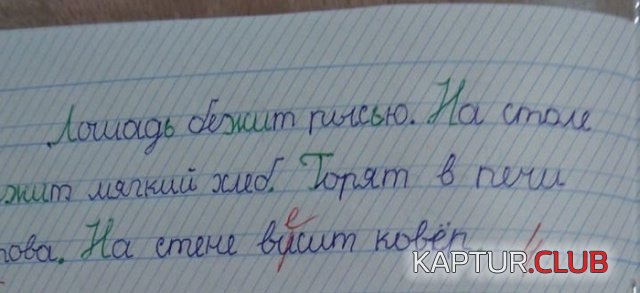 Лошадь бежит рысью. На столе
жит мягкий хлеб. Горят в печи
рова. На стене висит ковёр
е
KAPTUR.CLUB